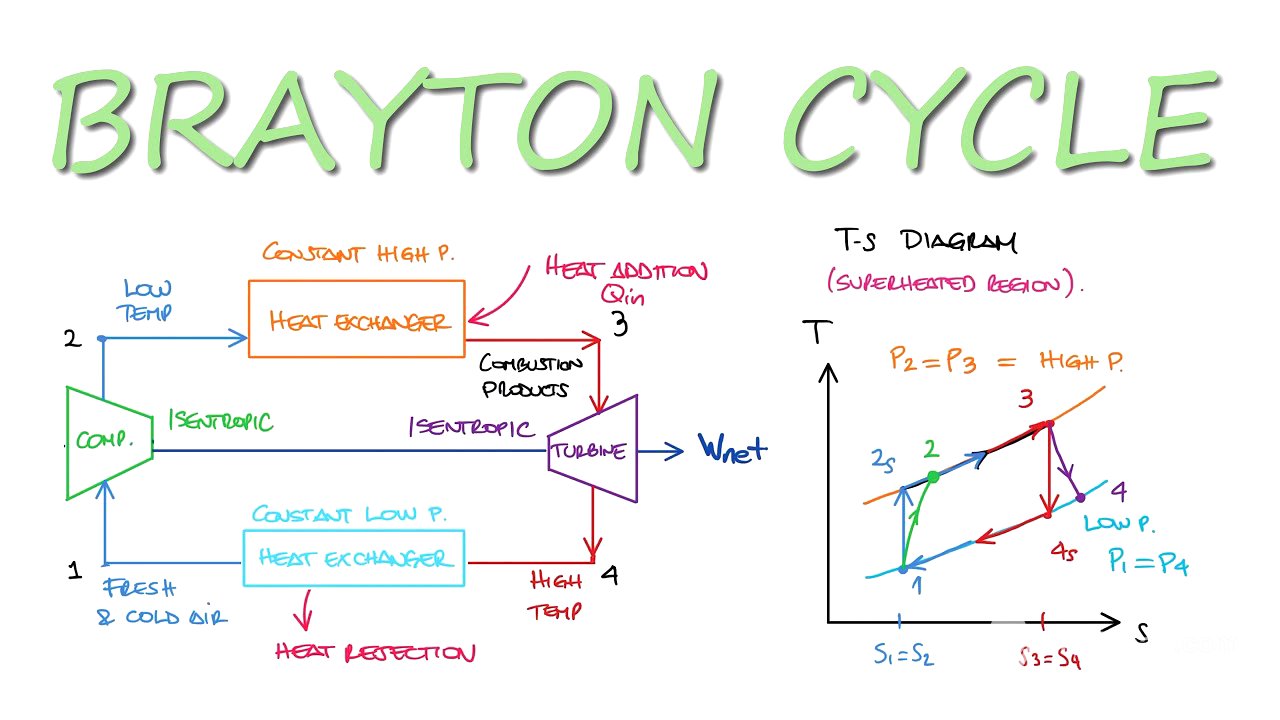 BRAYTON CYCLE
CONSTANT HIGH P.
LOW
TEMP
HEAT ADDITION
Qin
2
HEAT EXCHANGER
3
COMBUSTION
PRODUCTS
COMP.
ISENTROPIC
ISENTROPIC
TURBINE
Wnet
CONSTANT LOW P.
HEAT EXCHANGER
1
4
FRESH
& COLD AIR
HIGH
TEMP
HEAT REJECTION
T-S DIAGRAM
(SUPERHEATED REGION).
T
P₂ = P₃ = HIGH P.
3
2s
2
4
LOW P.
4s
P₁ = P₄
1
S
S₁ = S₂
S₃ = S₄